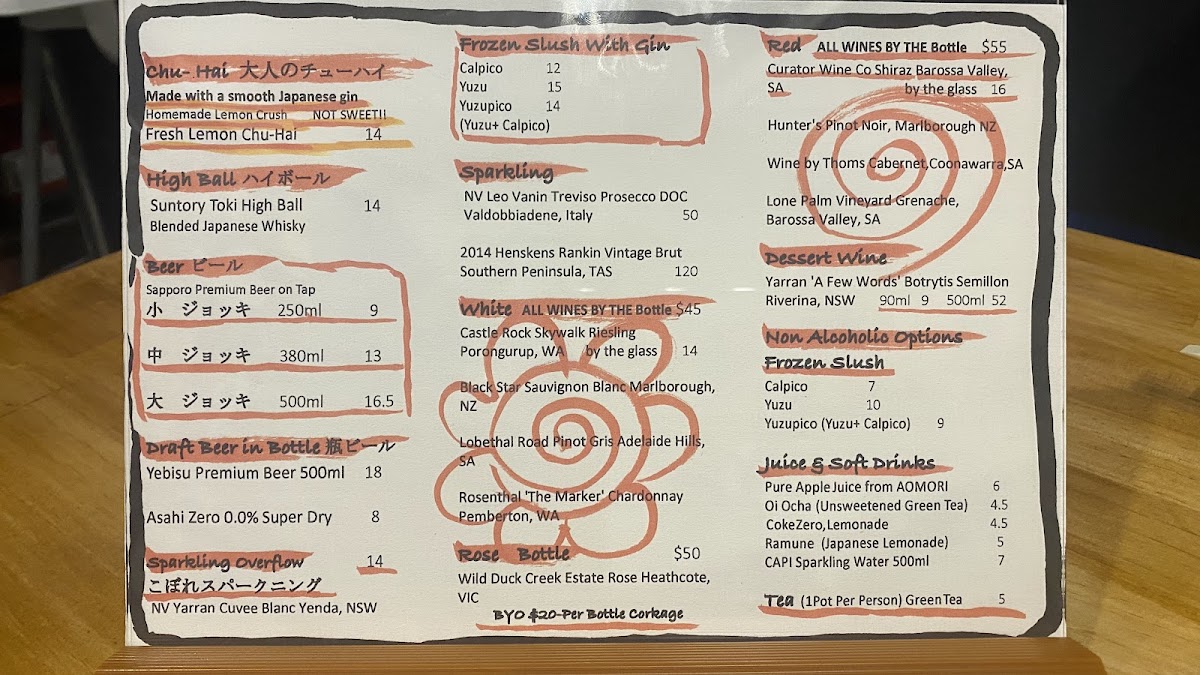 Chu-Hai 大人のチューハイ
Made with a smooth Japanese gin
Homemade Lemon Crush NOT SWEET!!
Fresh Lemon Chu-Hai 14
High Ball ハイボール
Suntory Toki High Ball 14
Blended Japanese Whisky
Beer ビール
Sapporo Premium Beer on Tap
小 ジョッキ 250ml 9
中 ジョッキ 380ml 13
大 ジョッキ 500ml 16.5
Draft Beer in Bottle 瓶ビール
Yebisu Premium Beer 500ml 18
Asahi Zero 0.0% Super Dry 8
Sparkling Overflow 14
こぼれスパークニング
NV Yarran Cuvee Blanc Yenda, NSW
Frozen Slush With Gin
Calpico 12
Yuzu 15
Yuzupico 14
(Yuzu+ Calpico)
Sparkling
NV Leo Vanin Treviso Prosecco DOC
Valdobbiadene, Italy 50
2014 Henskens Rankin Vintage Brut
Southern Peninsula, TAS 120
White ALL WINES BY THE Bottle $45
Castle Rock Skywalk Riesling
Porongurup, WA by the glass 14
Black Star Sauvignon Blanc Marlborough,
NZ
Lobethal Road Pinot Gris Adelaide Hills,
SA
Rosenthal 'The Marker' Chardonnay
Pemberton, WA
Rose Bottle $50
Wild Duck Creek Estate Rose Heathcote,
VIC
BYO $20-Per Bottle Corkage
Red ALL WINES BY THE Bottle $55
Curator Wine Co Shiraz Barossa Valley,
SA by the glass 16
Hunter's Pinot Noir, Marlborough NZ
Wine by Thoms Cabernet,Coonawarra,SA
Lone Palm Vineyard Grenache,
Barossa Valley, SA
Dessert Wine
Yarran 'A Few Words' Botrytis Semillon
Riverina, NSW 90ml 9 500ml 52
Non Alcoholic Options
Frozen Slush
Calpico 7
Yuzu 10
Yuzupico (Yuzu+ Calpico) 9
Juice & Soft Drinks
Pure Apple Juice from AOMORI 6
Oi Ocha (Unsweetened Green Tea) 4.5
CokeZero,Lemonade 4.5
Ramune (Japanese Lemonade) 5
CAPI Sparkling Water 500ml 7
Tea (1Pot Per Person) Green Tea 5